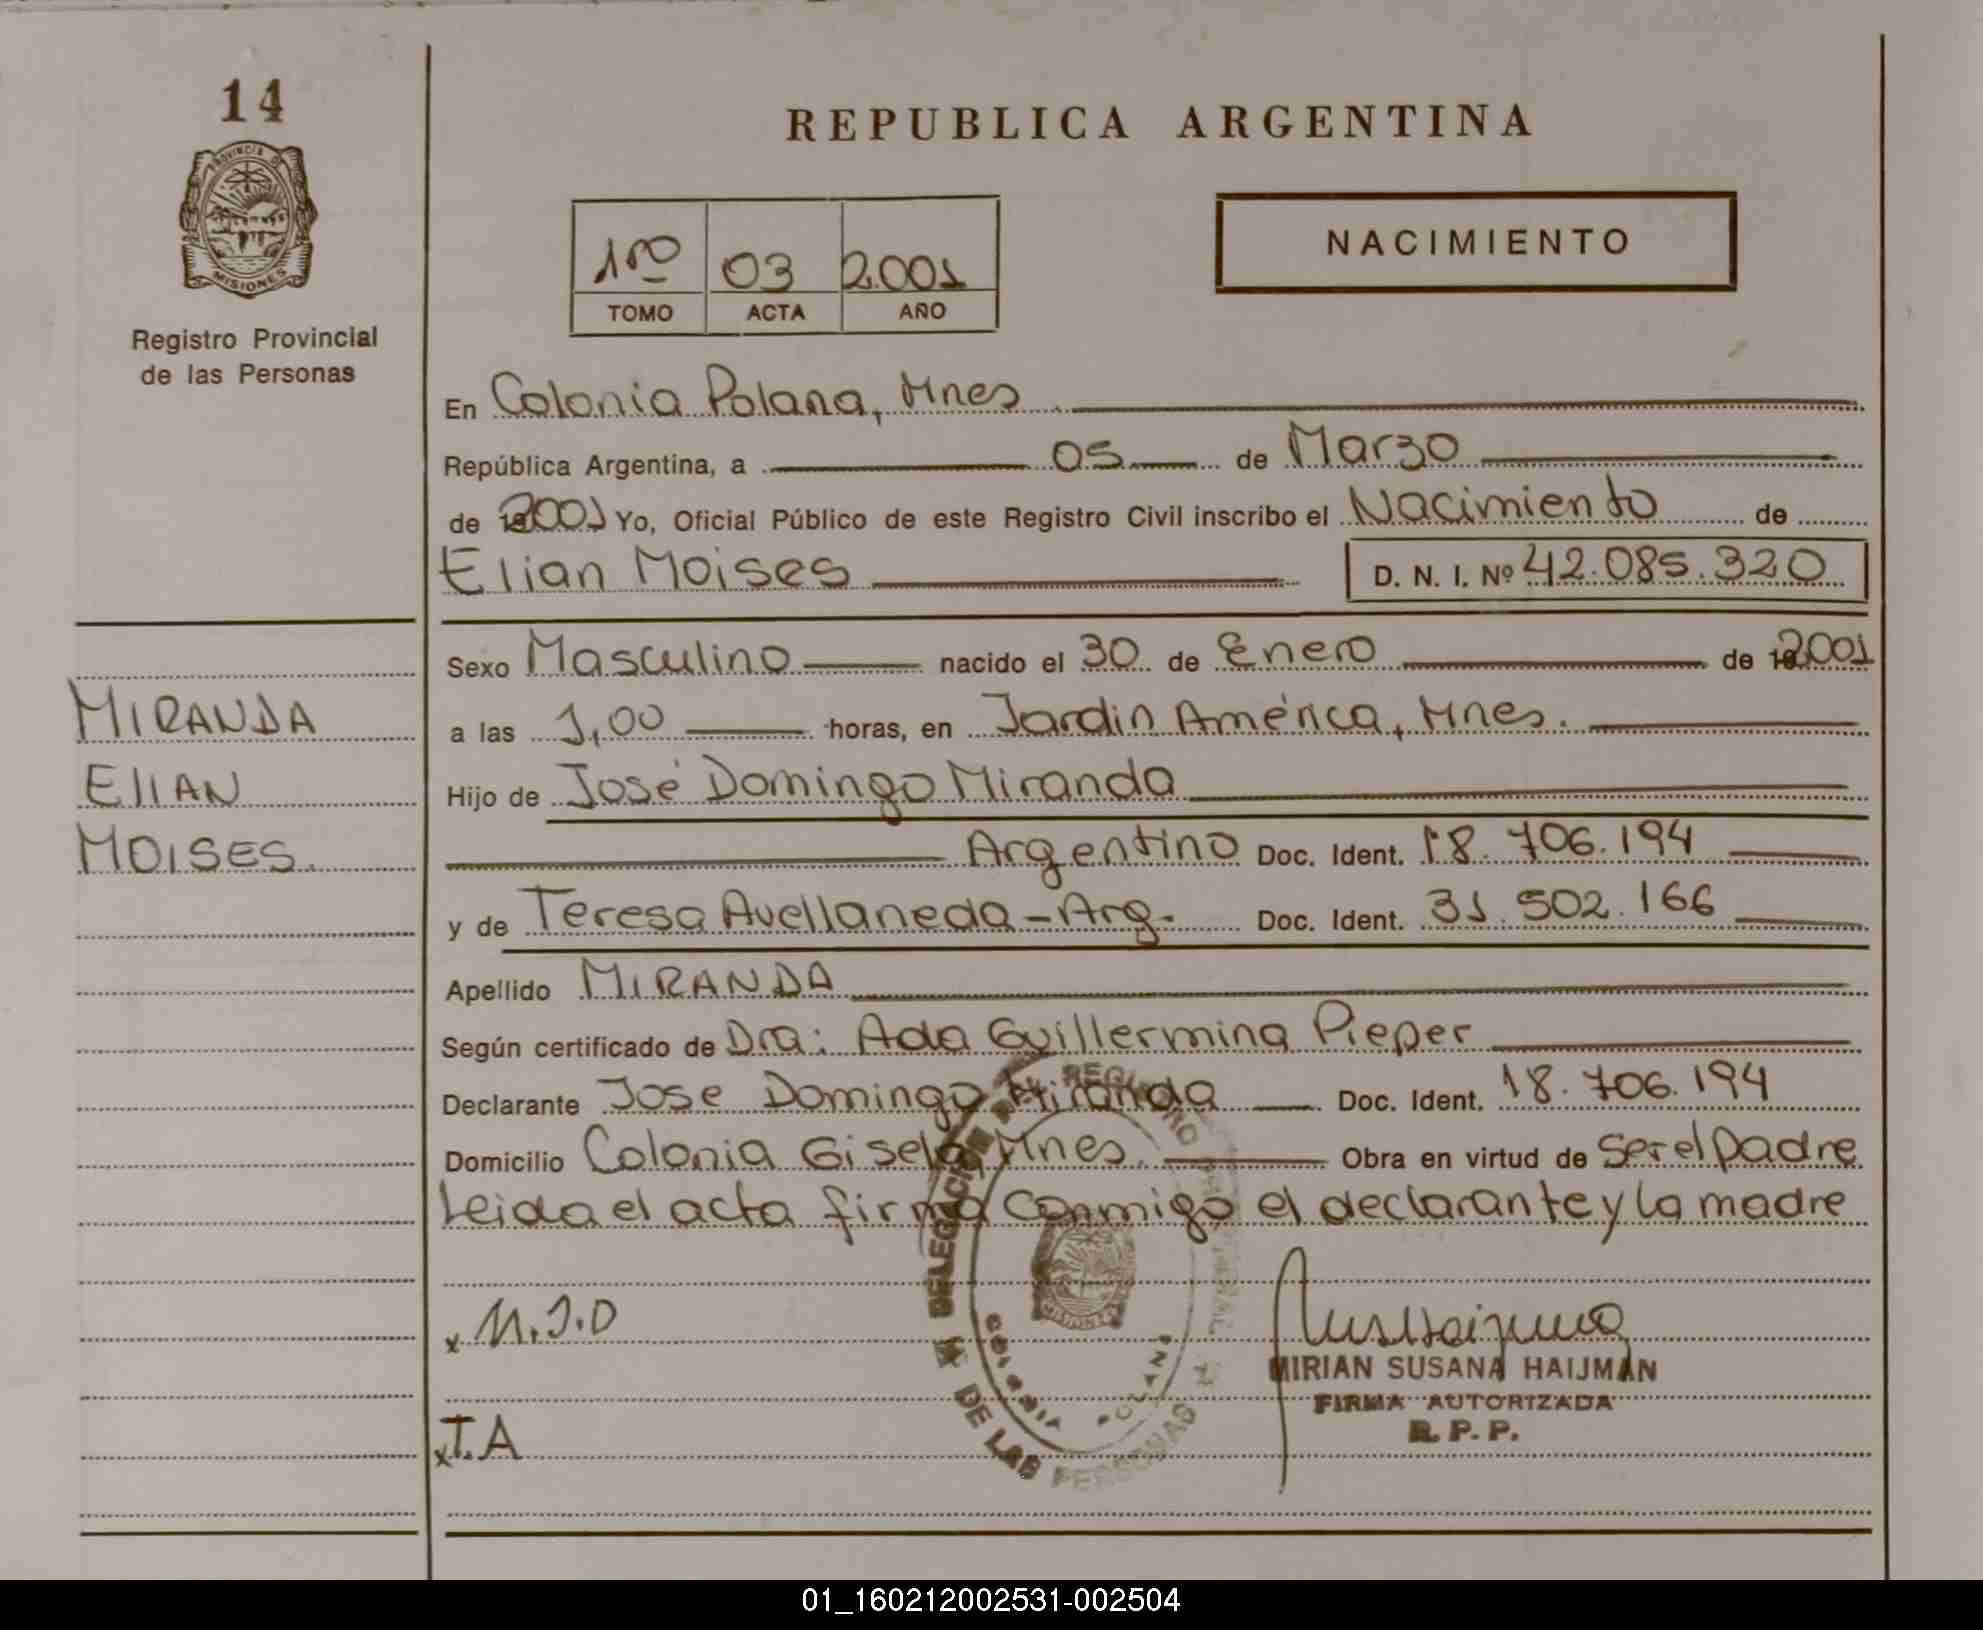 14
PROVINCIA DE
MISIONES
Registro Provincial
de las Personas
REPUBLICA ARGENTINA
1ro 03 2.001
TOMO ACTA AÑO
NACIMIENTO
En Colonia Polana, Mnes
República Argentina, a 05 de Marzo
de 2001 Yo, Oficial Público de este Registro Civil inscribo el Nacimiento de
Elian Moises D. N. I. Nº 42.085.320
Sexo Masculino nacido el 30 de Enero de 2001
a las 1,00 horas, en Jardin América, Mnes.
Hijo de José Domingo Miranda
Argentino Doc. Ident. 18.706.194
y de Teresa Avellaneda - Arg. Doc. Ident. 31.502.166
Apellido MIRANDA
Según certificado de Dra: Ada Guillermina Pieper
Declarante Jose Domingo Miranda Doc. Ident. 18.706.194
Domicilio Colonia Gisela, Mnes. Obra en virtud de ser el padre
Leida el acta firma conmigo el declarante y la madre
MIRANDA
ElIAN
MOISES.
x M.J.D
x T.A
DELEGACION DEL REGISTRO PROVINCIAL
DE LAS PERSONAS
COLONIA POLANA
MISIONES
MIRIAN SUSANA HAIJMAN
FIRMA AUTORIZADA
R. P. P.
01_160212002531-002504